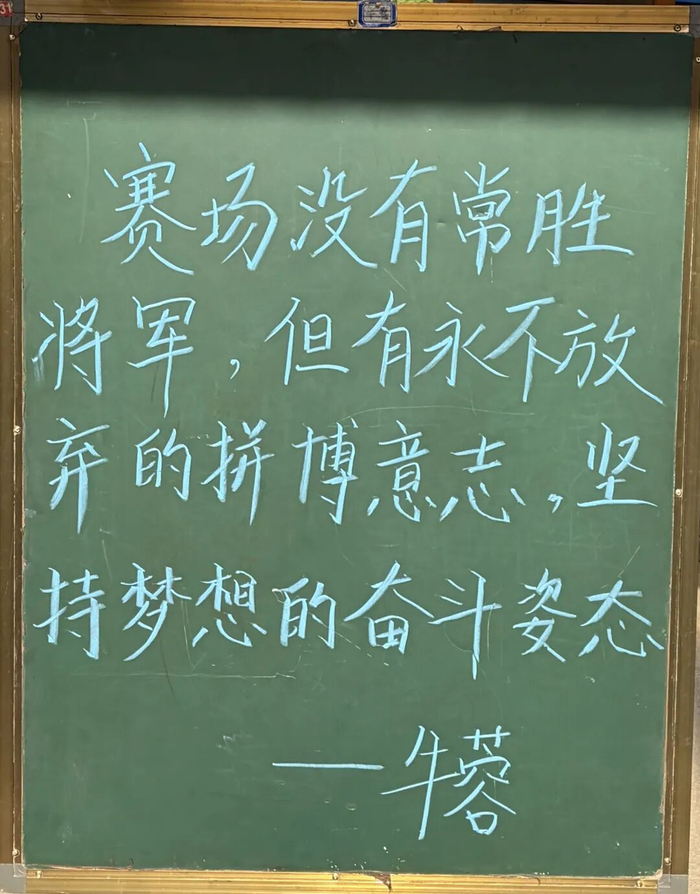 赛场没有常胜
将军，但有永不放
弃的拼博意志，坚
持梦想的奋斗姿态
——牛蓉
31